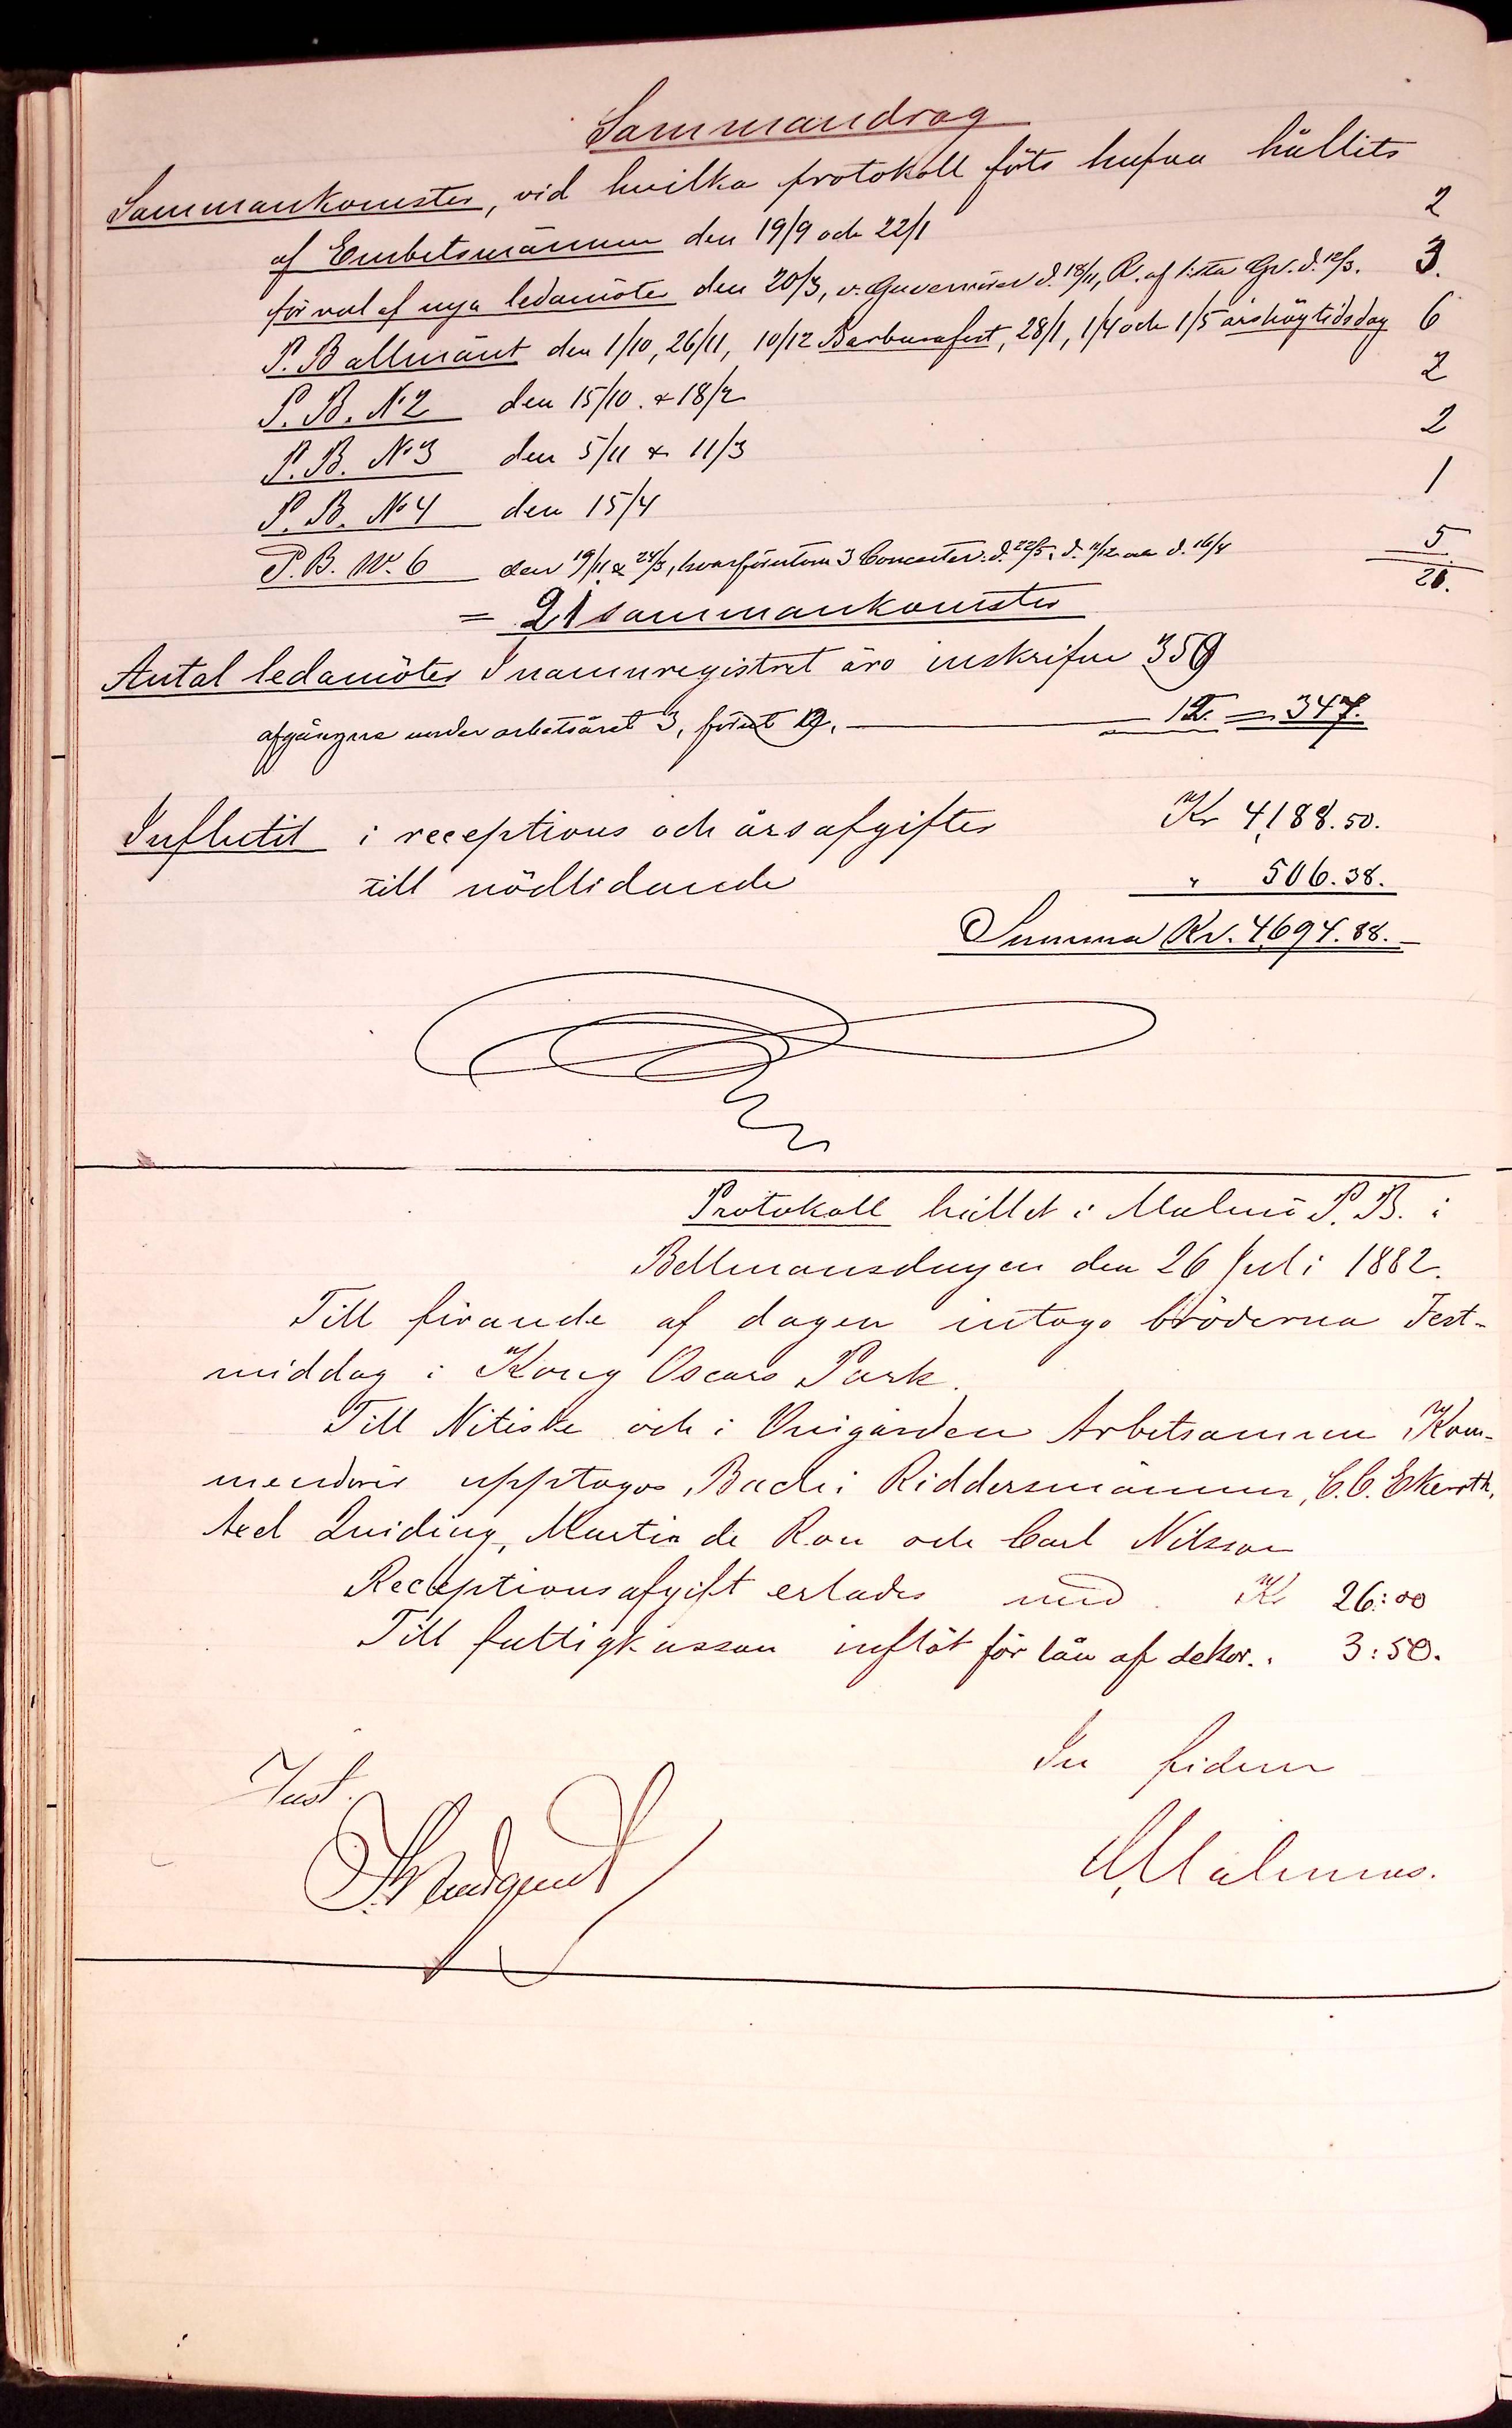 Sammandrag
Sammankomster, vid hvilka protokoll förts hafva hållits
af Embetsmännen den 19/9 och 22/1 2
för val af nya ledamöter den 20/3, v. Guvernörer d. 18/11, R. af 1:sta Gr. d. 12/3. 3.
P. B allmänt den 1/10, 26/11, 10/12 Barbarafest, 28/1, 1/4 och 1/5 årshögtidsdag 6
P. B. No 2 den 15/10. & 18/2 2
P. B. No 3 den 5/11 & 11/3 2
P. B. No 4 den 15/4 1
P. B. No. 6 den 19/11 & 24/3, hvarförutom 3 Concerter d. 22/5, d. 11/12 och d. 16/4 5
21.
= 21 sammankomster
Antal ledamöter I namnregistret äro inskrifne 359
afgångne under arbetsåret 3, förut 9. 12. = 347.
Influtit i receptions och årsafgifter Kr 4,188.50.
till nödlidande " 506.38.
Summa Kr. 4,694.88.
Protokoll hållet i Malmö P. B. i
Bellmansdagen den 26 Juli 1882.
Till firande af dagen intogo bröderna Fest-
middag i Kong Oscars Park.
Till Nitiske och i Vingården Arbetsamme Kom-
mendörer upptogos Bachi Riddersmännen, C. C. Ekeroth,
Axel Quiding, Martin de Ron och Carl Nilsson
Receptionsafgift erlades med Kr 26:00
Till fattigkassan inflöt för lån af dekor. 3:50.
In fidem
Just.